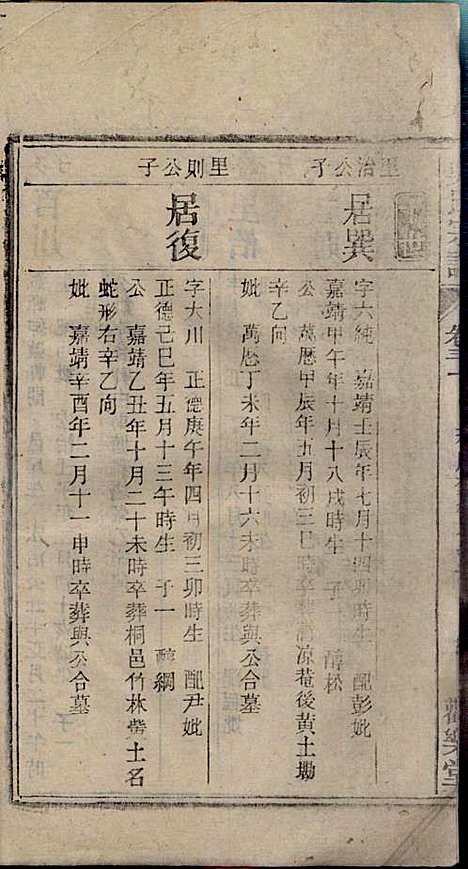 里治公子
居巽
字六純 嘉靖壬辰年七月十四卯時生 配彭妣
嘉靖甲午年十月十八戌時生 子一 醇松
公 萬曆甲辰年五月初三巳時卒葬 涼菴後黃土墈
辛乙向
妣 萬曆丁未年二月十六未時卒葬與公合墓
里則公子
居復
字大川 正德庚午年四月初三卯時生 配尹妣
正德己巳年五月十三午時生 子一 醇綱
公 嘉靖乙丑年十月二十未時卒葬桐邑竹林甇土名
蛇形右辛乙向
妣 嘉靖辛酉年二月十一申時卒葬與公合墓